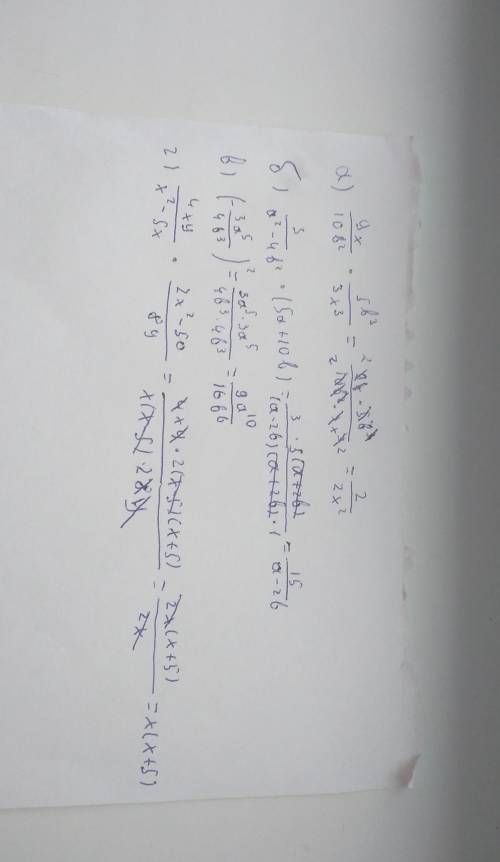 а) 9x/10b² · 5b³/3x³ = = 2/2x²
б) 3/a²-4b² · (5a+10b) = 3·5(a+2b)/(a-2b)(a+2b)·1 = 15/a-2b
в) (-3a⁵/4b³)² = 3a⁵·3a⁵/4b³·4b³ = 9a¹⁰/16b⁶
г) 4xy/x²-5x · 2x²-50/8y = 4xy·2(x-5)(x+5)/x(x-5)·2 = 2x(x+5)/2x = x(x+5)